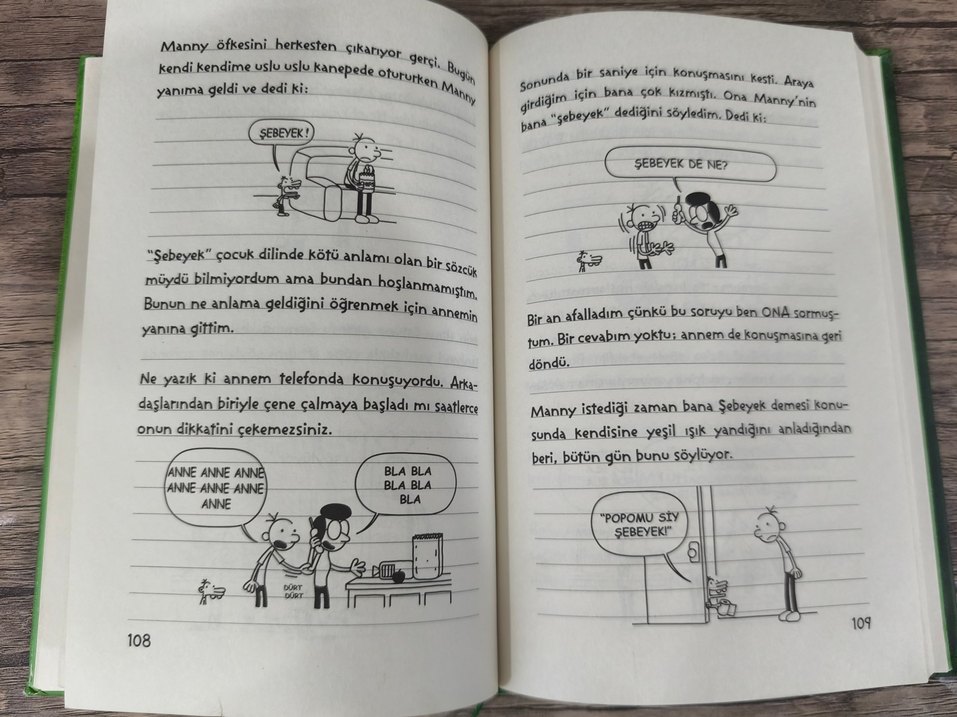 Manny öfkesini herkesten çıkarıyor gerçi. Bugün
kendi kendime uslu uslu kanepede otururken Manny
yanıma geldi ve dedi ki:
ŞEBEYEK!
"Şebeyek" çocuk dilinde kötü anlamı olan bir sözcük
müydü bilmiyordum ama bundan hoşlanmamıştım.
Bunun ne anlama geldiğini öğrenmek için annemin
yanına gittim.
Ne yazık ki annem telefonda konuşuyordu. Arka-
daşlarından biriyle çene çalmaya başladı mı saatlerce
onun dikkatini çekemezsiniz.
ANNE ANNE ANNE
ANNE ANNE ANNE
ANNE
BLA BLA
BLA BLA
BLA
DÜRT
DÜRT
108
Sonunda bir saniye için konuşmasını kesti. Araya
girdiğim için bana çok kızmıştı. Ona Manny'nin
bana "şebeyek" dediğini söyledim. Dedi ki:
ŞEBEYEK DE NE?
Bir an afalladım çünkü bu soruyu ben ONA sormuş-
tum. Bir cevabım yoktu; annem de konuşmasına geri
döndü.
Manny istediği zaman bana Şebeyek demesi konu-
sunda kendisine yeşil ışık yandığını anladığından
beri, bütün gün bunu söylüyor.
"POPOMU SİY
ŞEBEYEK!"
109